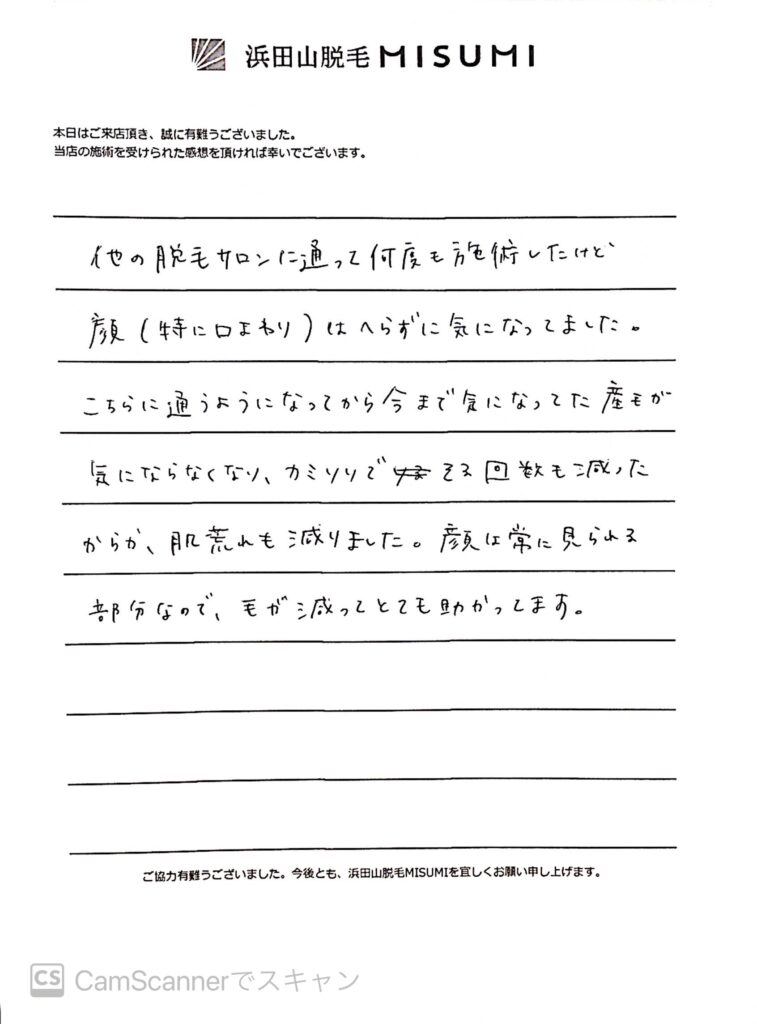 浜田山脱毛 MISUMI
本日はご来店頂き、誠に有難うございました。
当店の施術を受けられた感想を頂ければ幸いでございます。
他の脱毛サロンに通って何度も施術したけど
顔(特に口まわり)はへらずに気になってました。
こちらに通うようになってから今まで気になってた産毛が
気にならなくなり、カミソリで そる回数も減った
からか、肌荒れも減りました。顔は常に見られる
部分なので、毛が減ってとても助かってます。
ご協力有難うございました。今後とも、浜田山脱毛MISUMIを宜しくお願い申し上げます。
CS CamScannerでスキャン